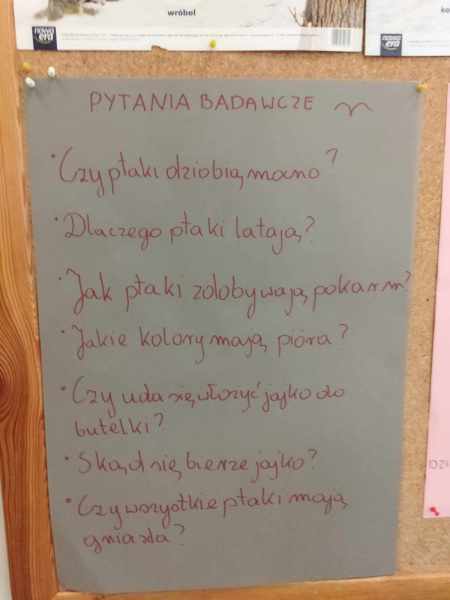 wróbel
nowa
era
PYTANIA BADAWCZE
• Czy ptaki dziobią mocno?
• Dlaczego ptaki latają?
• Jak ptaki zdobywają pokarm?
• Jakie kolory mają pióra?
• Czy uda się włożyć jajko do
butelki?
• Skąd się bierze jajko?
• Czy wszystkie ptaki mają
gniazda?